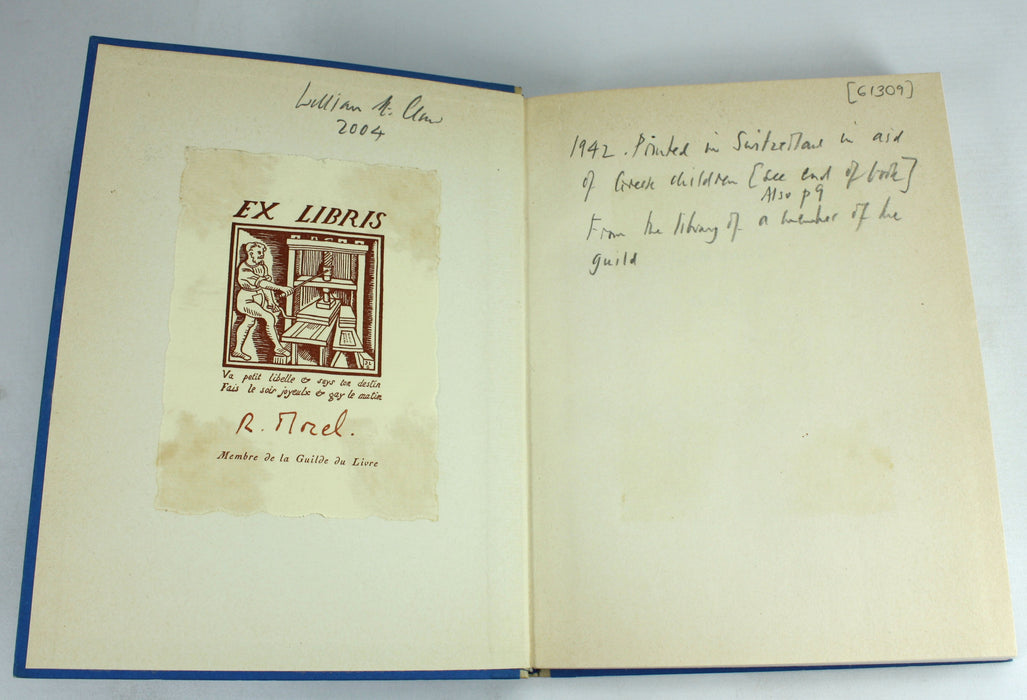 William
2004
EX LIBRIS
Va petit libelle & suys ton destin
Fais le soir joyeulx & gay le matin
R. Morel.
Membre de la Guilde du Livre
[61309]
1942. Printed in Switzerland in aid
of Greek children [see end of book]
Also p9
From the library of a member of the
guild